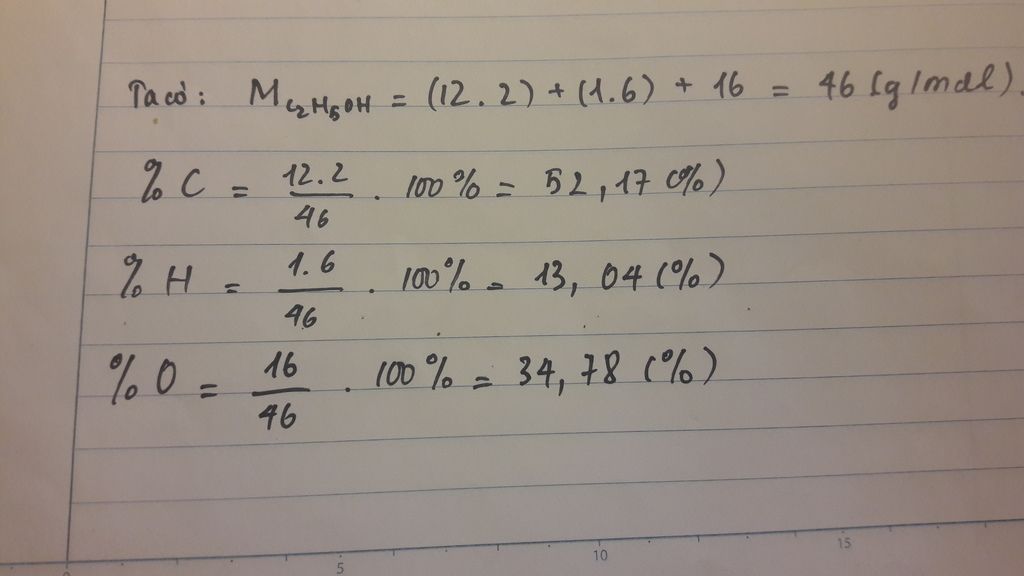 Ta có: M C₂H₅OH = (12.2) + (1.6) + 16 = 46 (g/mol).
% C = 12.2/46 . 100% = 52,17 (%)
% H = 1.6/46 . 100% = 13,04 (%)
% O = 16/46 . 100% = 34,78 (%)
0 5 10 15